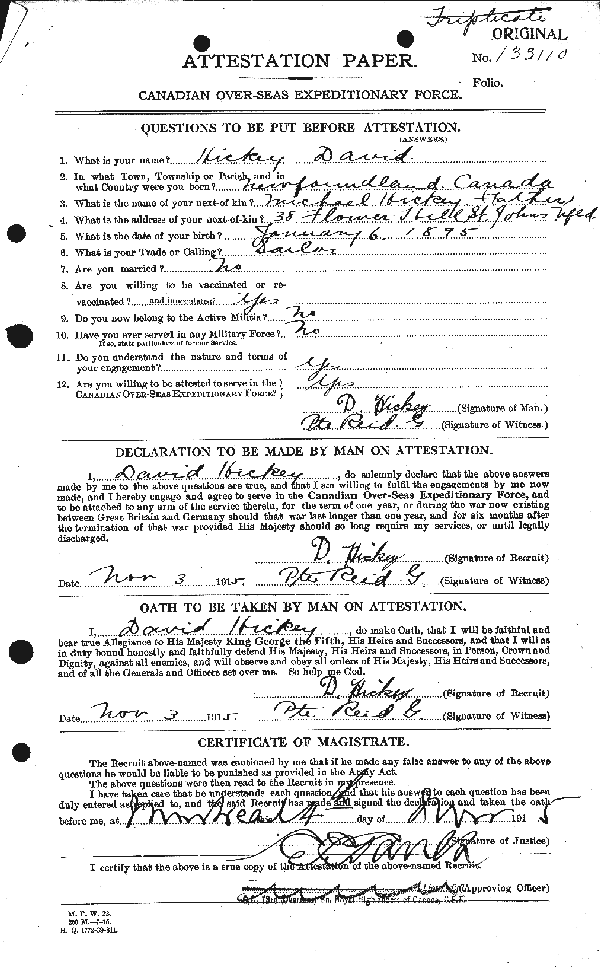 Triplicate
ORIGINAL
ATTESTATION PAPER.
No. 133110
Folio.
CANADIAN OVER-SEAS EXPEDITIONARY FORCE.
QUESTIONS TO BE PUT BEFORE ATTESTATION.
(ANSWERS)
1. What is your name? Hickey David
2. In what Town, Township or Parish, and in
what Country were you born? Newfoundland Canada
3. What is the name of your next-of-kin? Michael Hickey Father
4. What is the address of your next-of-kin? 38 Flower Hill St Johns Nfld
5. What is the date of your birth? January 6 1895
6. What is your Trade or Calling? Sailor
7. Are you married? No
8. Are you willing to be vaccinated or re-
vaccinated? and inoculated? Yes
9. Do you now belong to the Active Militia? No
10. Have you ever served in any Military Force? No
If so, state particulars of former Service.
11. Do you understand the nature and terms of
your engagement? Yes
12. Are you willing to be attested to serve in the Yes
CANADIAN OVER-SEAS EXPEDITIONARY FORCE?
D. Hickey (Signature of Man.)
Pte Reid G (Signature of Witness.)
DECLARATION TO BE MADE BY MAN ON ATTESTATION.
I, David Hickey, do solemnly declare that the above answers
made by me to the above questions are true, and that I am willing to fulfil the engagements by me now
made, and I hereby engage and agree to serve in the Canadian Over-Seas Expeditionary Force, and
to be attached to any arm of the service therein, for the term of one year, or during the war now existing
between Great Britain and Germany should that war last longer than one year, and for six months after
the termination of that war provided His Majesty should so long require my services, or until legally
discharged.
D. Hickey (Signature of Recruit)
Date Nov 3 1915. Pte Reid G (Signature of Witness)
OATH TO BE TAKEN BY MAN ON ATTESTATION.
I, David Hickey, do make Oath, that I will be faithful and
bear true Allegiance to His Majesty King George the Fifth, His Heirs and Successors, and that I will as
in duty bound honestly and faithfully defend His Majesty, His Heirs and Successors, in Person, Crown and
Dignity, against all enemies, and will observe and obey all orders of His Majesty, His Heirs and Successors,
and of all the Generals and Officers set over me. So help me God.
D. Hickey (Signature of Recruit)
Date Nov 3 1915. Pte Reid G (Signature of Witness)
CERTIFICATE OF MAGISTRATE.
The Recruit above-named was cautioned by me that if he made any false answer to any of the above
questions he would be liable to be punished as provided in the Army Act.
The above questions were then read to the Recruit in my presence.
I have taken care that he understands each question, and that his answer to each question has been
duly entered as replied to, and the said Recruit has made and signed the declaration and taken the oath
before me, at Montreal 4 day of Nov 1915
(Signature of Justice)
I certify that the above is a true copy of the Attestation of the above-named Recruit.
(Approving Officer)
M. F. W. 23.
H. Q. 1772-39-841.